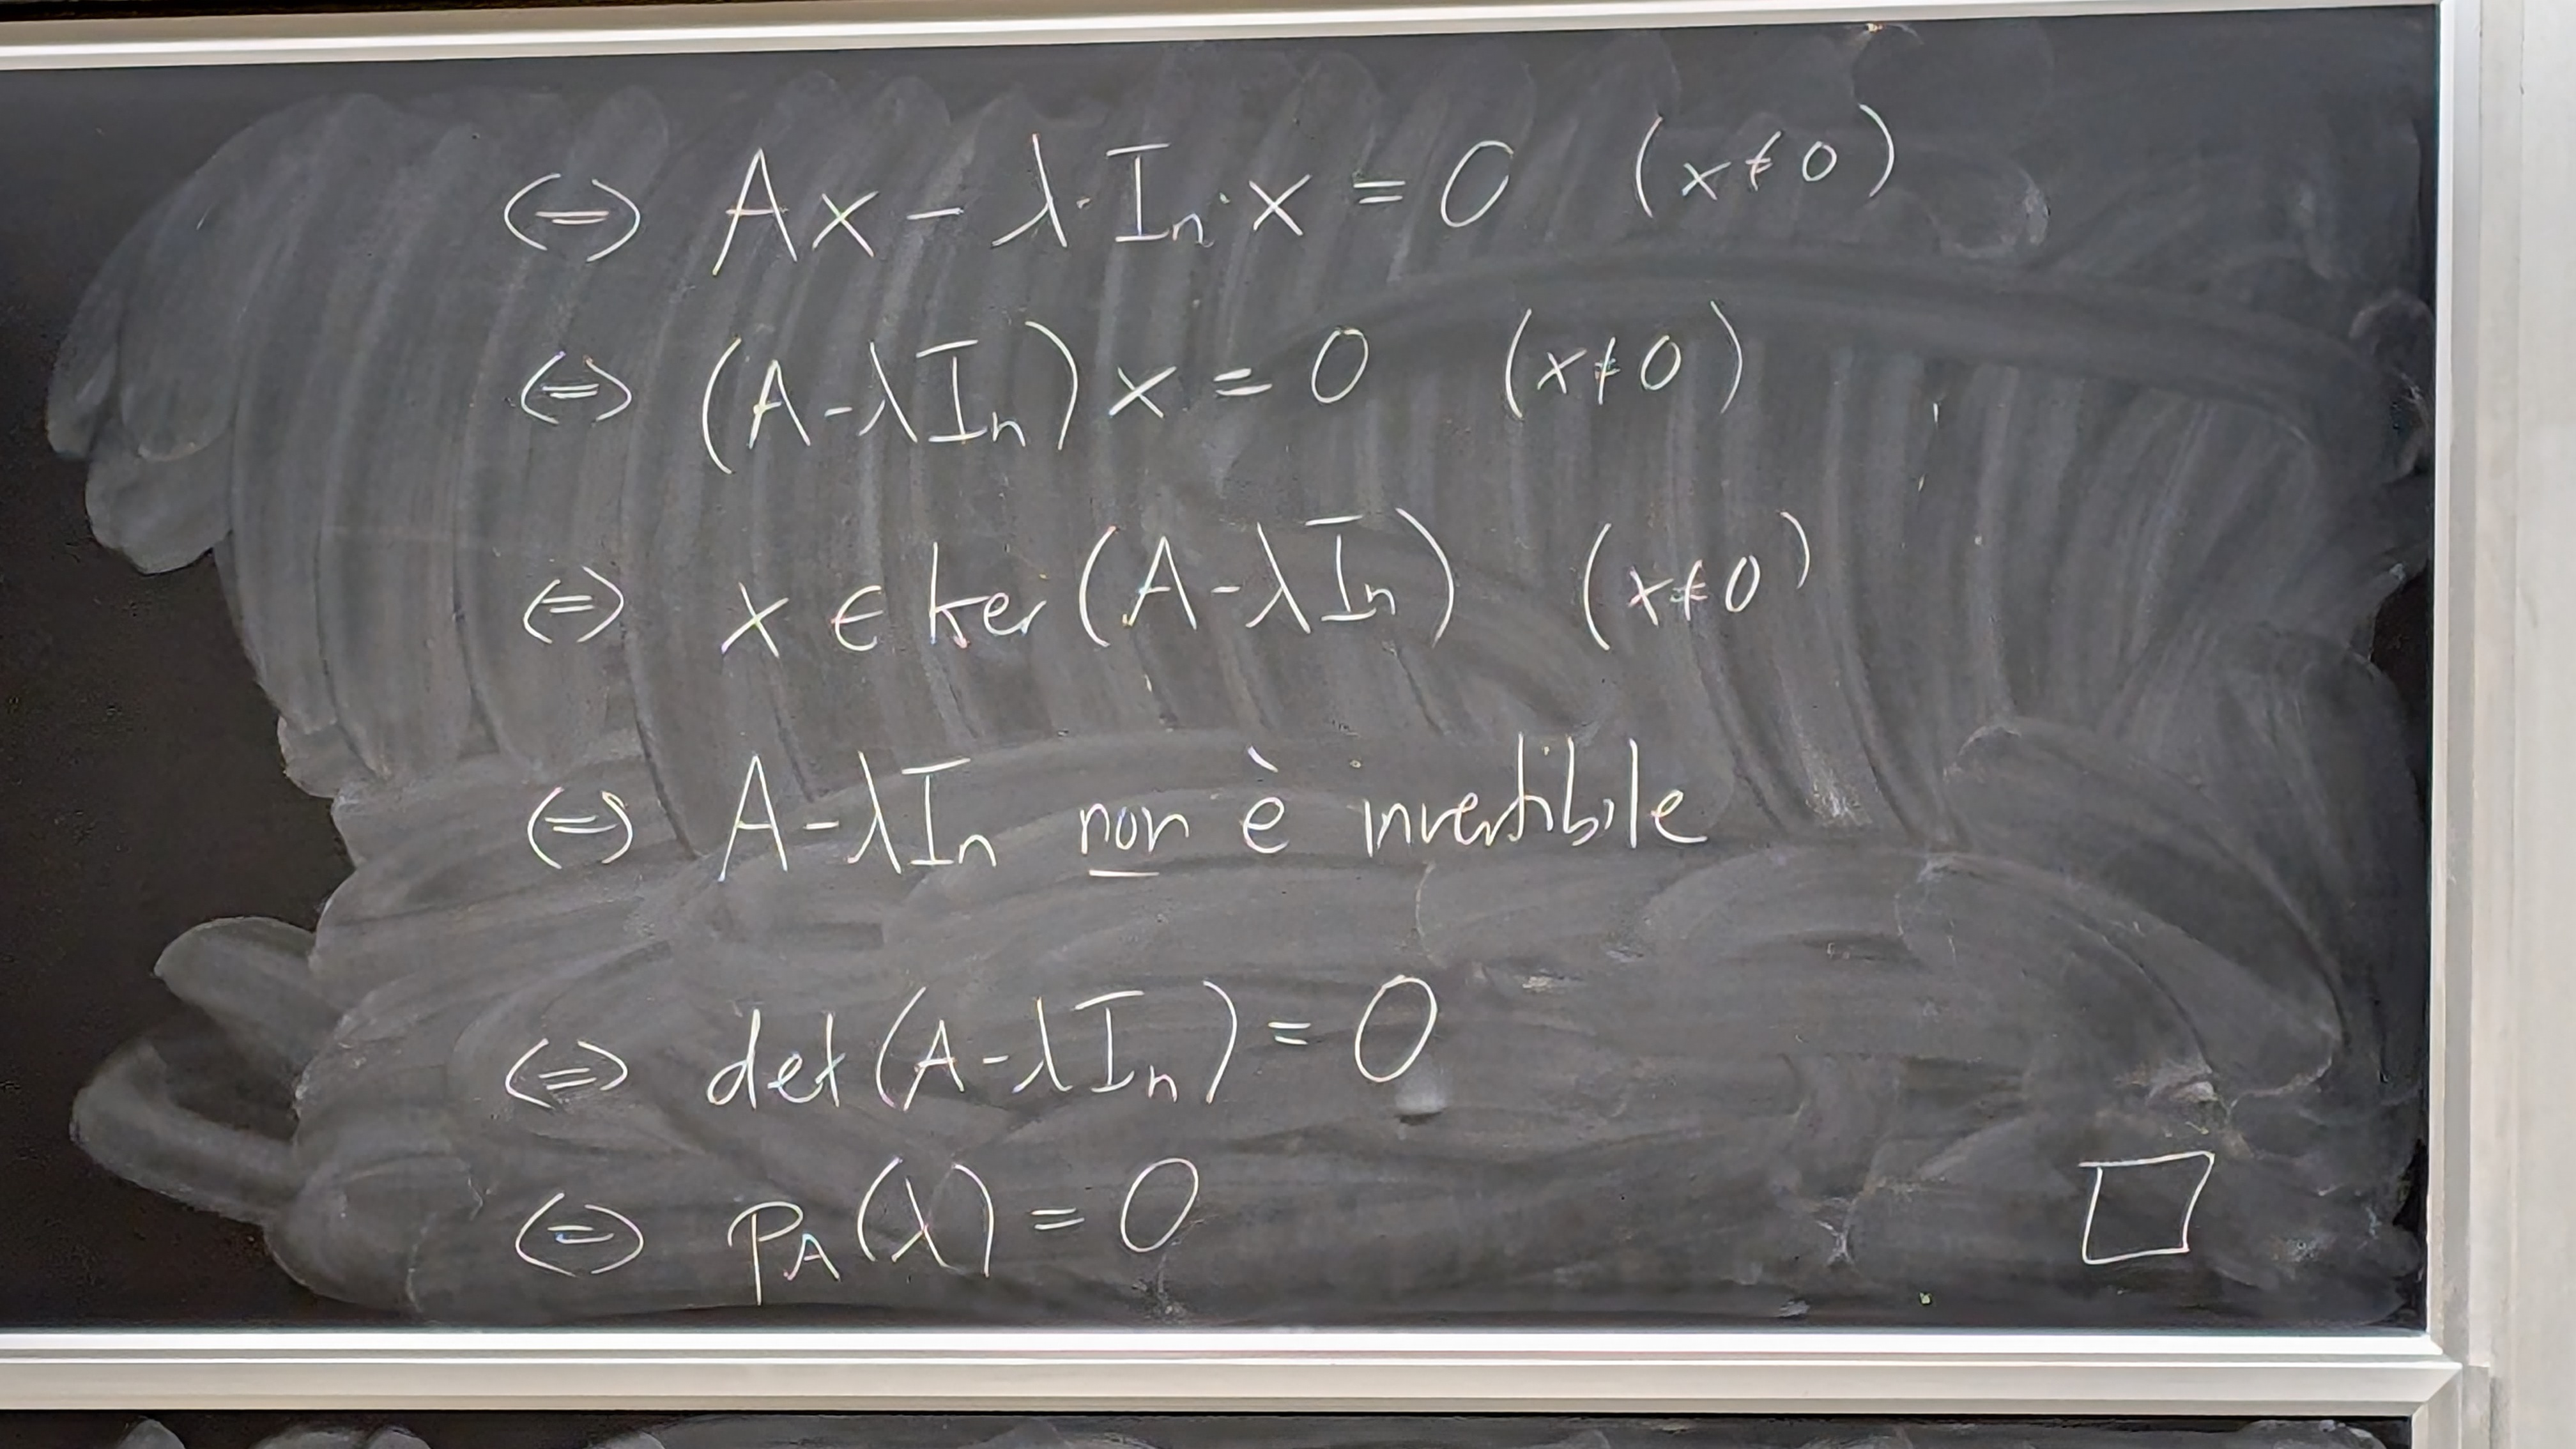 ⇔ Ax - λ·Iₙ·x = 0 (x≠0)
⇔ (A-λIₙ)x = 0 (x≠0)
⇔ x ∈ ker(A-λIₙ) (x≠0)
⇔ A-λIₙ non è invertibile
⇔ det(A-λIₙ) = 0
⇔ p_A(λ) = 0 □